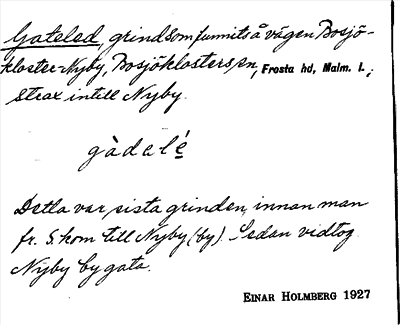 Gateled, grind som funnits å vägen Bosjö-
kloster-Nyby, Bosjöklosters sn, Frosta hd, Malm. l.;
strax intill Nyby.
gàdelé
Detta var sista grinden, innan man
fr. S. kom till Nyby (by). Sedan vidtog
Nyby bygata.
EINAR HOLMBERG 1927